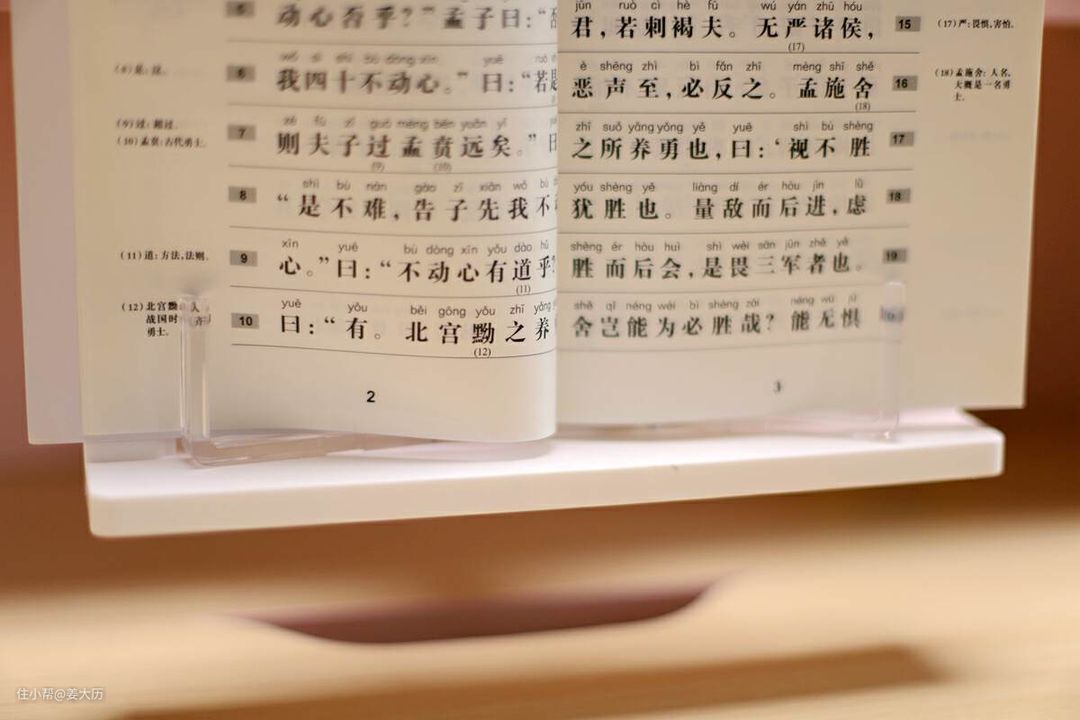 动心否乎？”孟子曰：“
(8)是：这。
6 我四十不动心。”曰：“若
(9)过：超过。
(10)孟贲：古代勇士。
zé fū zǐ guò mèng bēn yuǎn yǐ
7 则夫子过孟贲远矣。”曰
(9) (10)
shì bù nán gào zǐ xiān wǒ bù
8 “是不难，告子先我不
(11)道：方法，法则。
xīn yuē bù dòng xīn yǒu dào hū
9 心。”曰：“不动心有道乎
(11)
(12)北宫黝：人
战国时 齐
勇士。
yuē yǒu běi gōng yǒu zhī yǎng
10 曰：“有。北宫黝之养
(12)
2
jūn ruò cì hè fū wú yán zhū hóu
君，若刺褐夫。无严诸侯， 15
(17)
(17)严：畏惧，害怕。
è shēng zhì bì fǎn zhī mèng shī shě
恶声至，必反之。孟施舍 16
(18)
(18)孟施舍：人名，
大概是一名勇
士。
zhī suǒ yǎng yǒng yě yuē shì bú shèng
之所养勇也，曰：‘视不胜 17
yóu shèng yě liàng dí ér hòu jìn lǜ
犹胜也。量敌而后进，虑 18
shèng ér hòu huì shì wèi sān jūn zhě yě
胜而后会，是畏三军者也。 19
shě qǐ néng wéi bì shèng zāi néng wú jù
舍岂能为必胜哉？能无惧
3
住小帮@姜大历